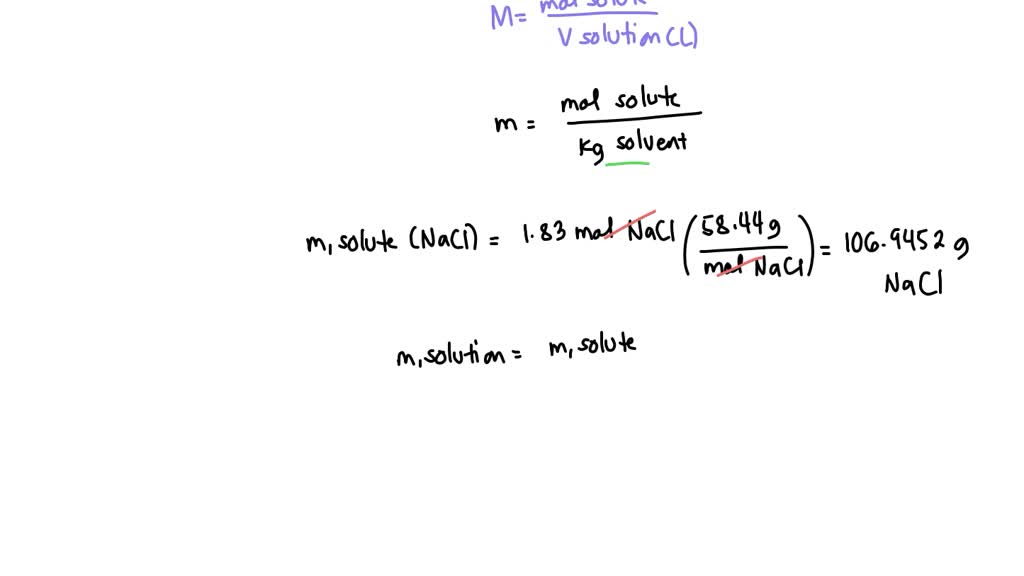 M= mol solute
V solution (L)
m = mol solute
kg solvent
m, solute (NaCl) = 1.83 mol NaCl (58.44g / mol NaCl) = 106.9452 g
NaCl
m, solution = m, solute